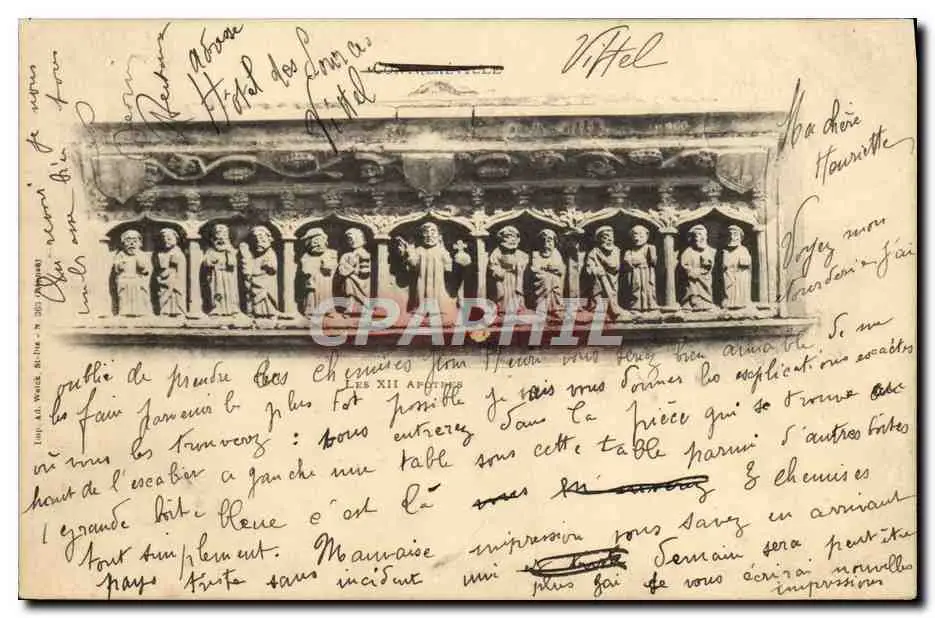 Vittel
CONTREXÉVILLE
adresse
Hôtel des Sources
Vittel
Ma chère
Henriette
Voyez mon
étourderie j'ai
oublié de prendre les chemises pour Henri vous serez bien aimable de me
les faire parvenir le plus tot possible je vais vous donner les explications exactes
où vous les trouverez : vous entrerez dans la pièce qui se trouve au
haut de l'escalier a gauche une table sous cette table parmi d'autres boites
1 grande boite bleue c'est là 3 chemises
tout simplement. Mauvaise impression vous savez en arrivant
pays triste sans incident demain sera peut-être
plus gai je vous écrirai nouvelles
impressions
Au revoir je vous
LES XII APOTRES
CPARHIL
Imp. Ad. Weick, St-Dié - N. 363